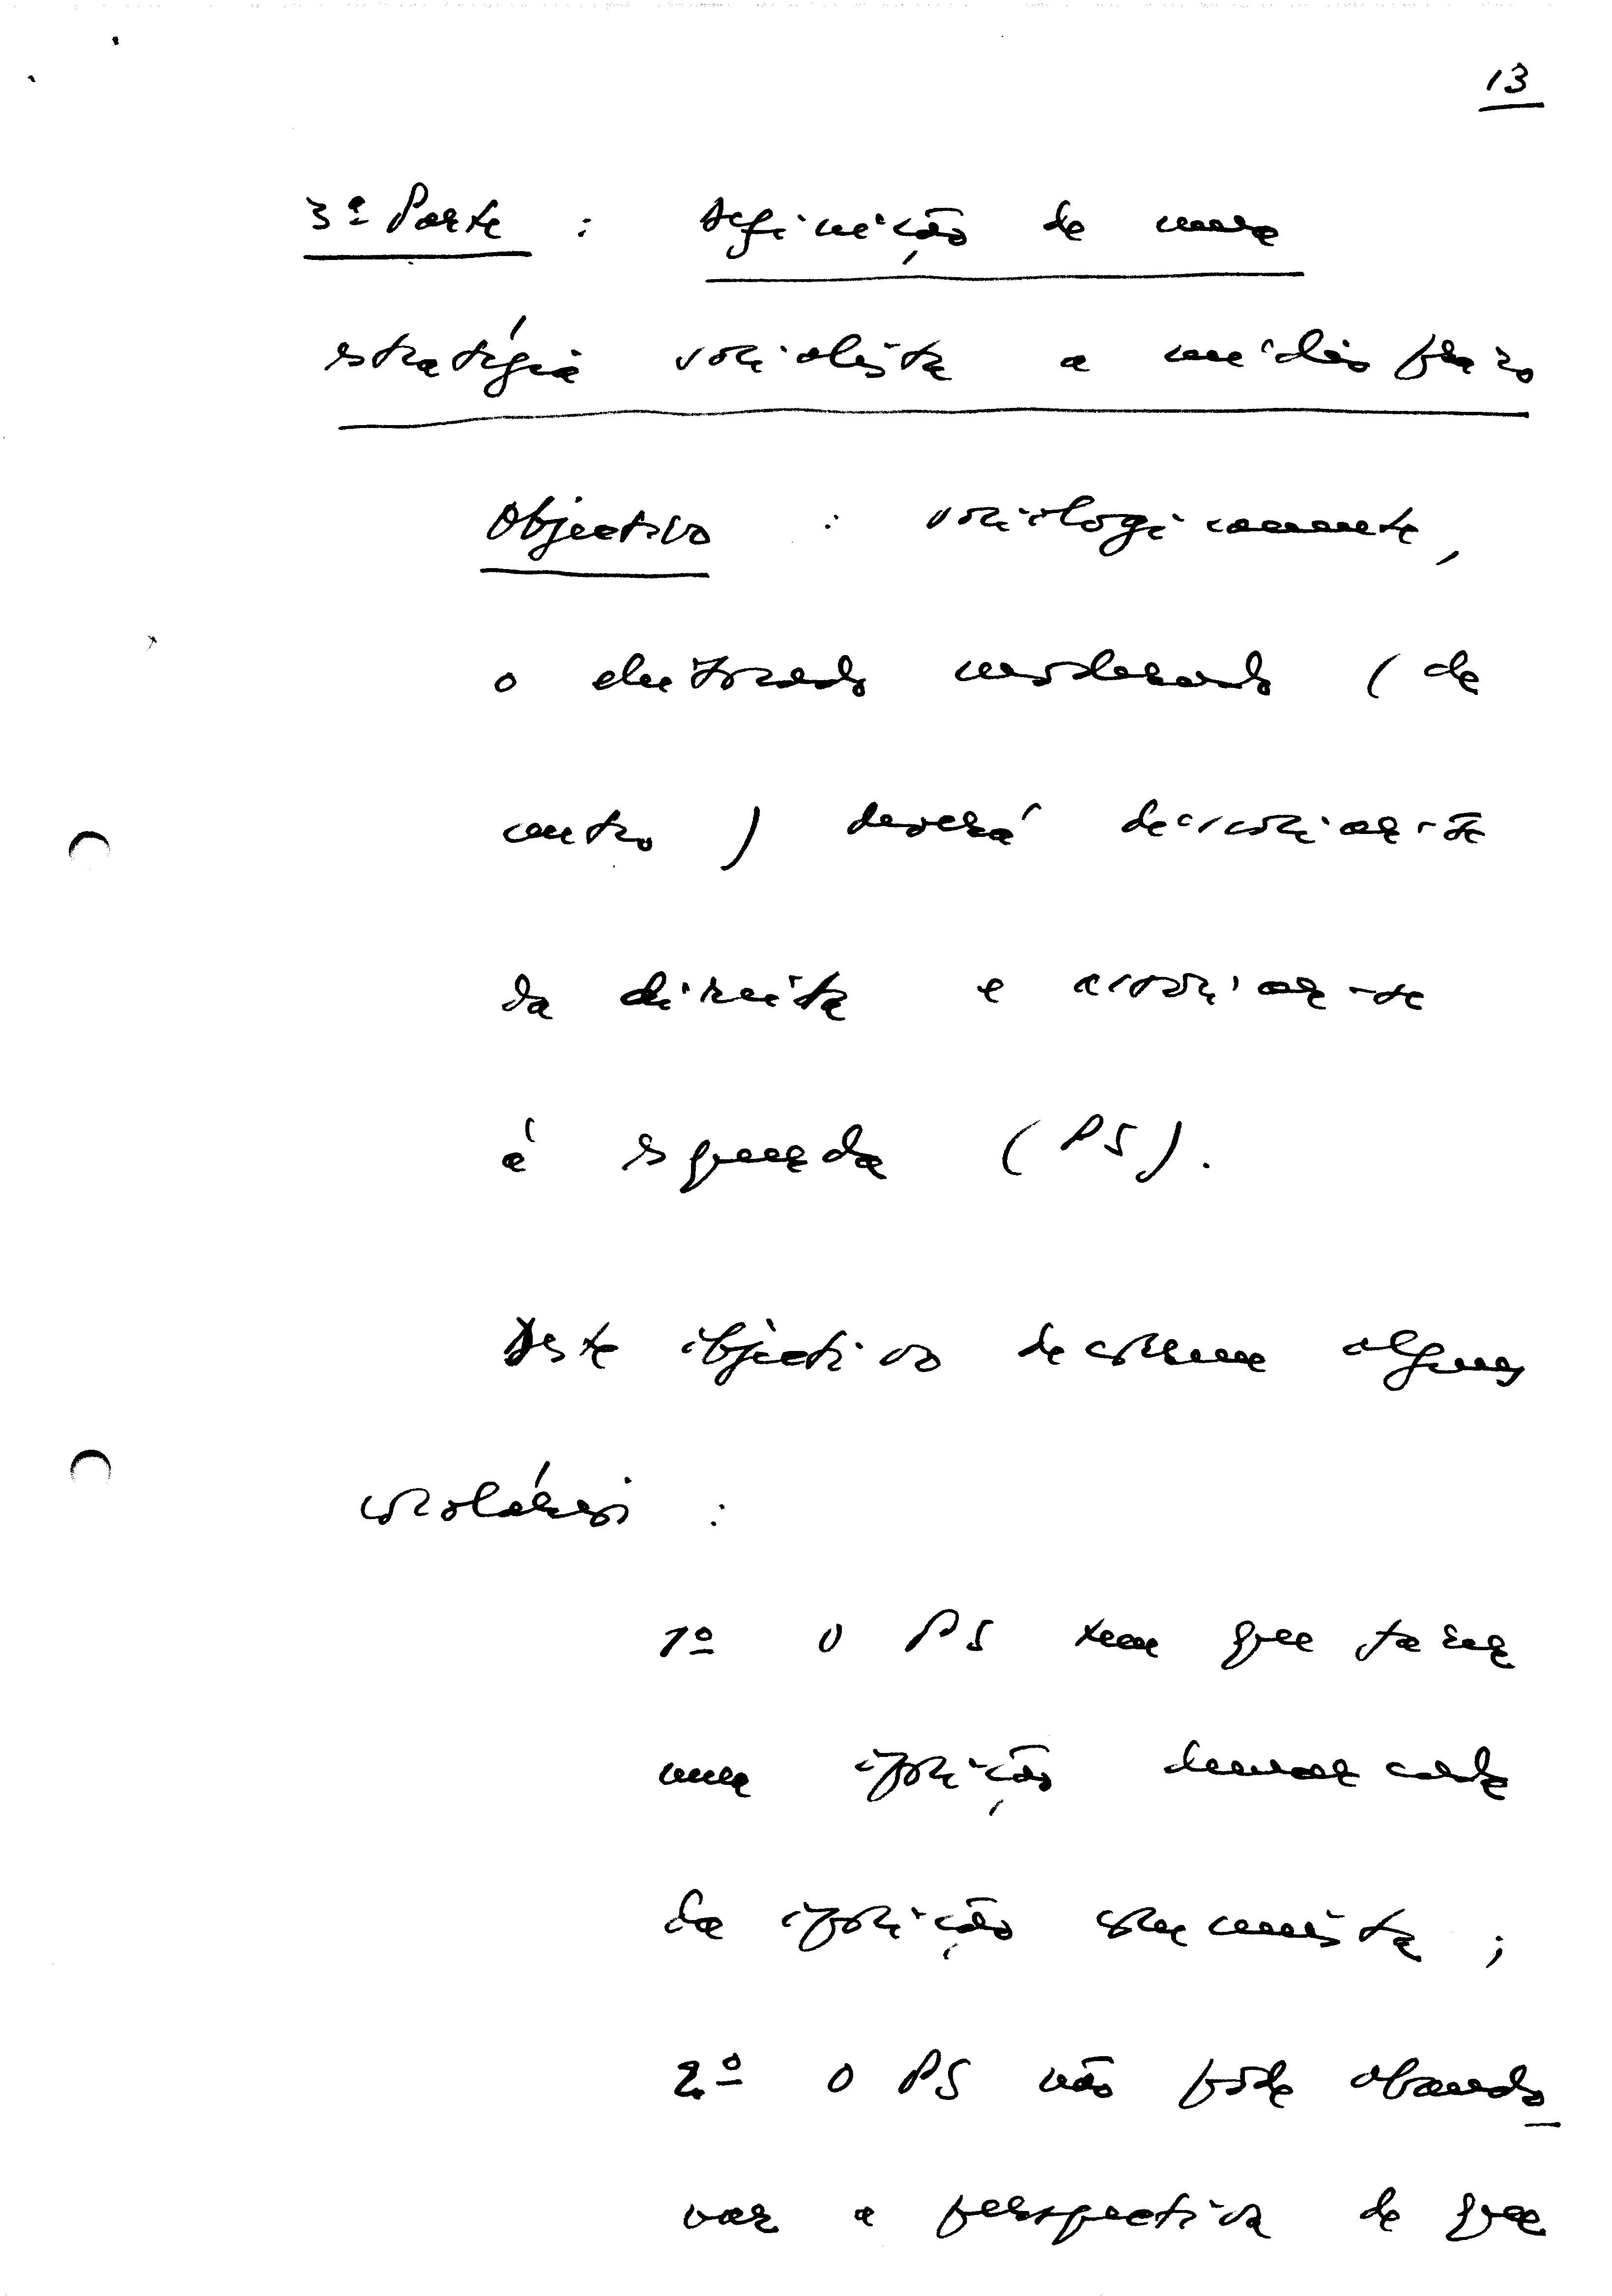 13
3ª Parte : definição de uma
estratégia socialista a médio prazo
Objectivo : sociologicamente,
o eleitorado moderado (de
centro) deverá dissociar-se
da direita e associar-se
à esquerda (PS).
Deste objectivo decorrem alguns
corolários :
1º O PS tem que fazer
uma oposição demarcada
da oposição comunista ;
2º O PS não pode abando
nar a perspectiva de que